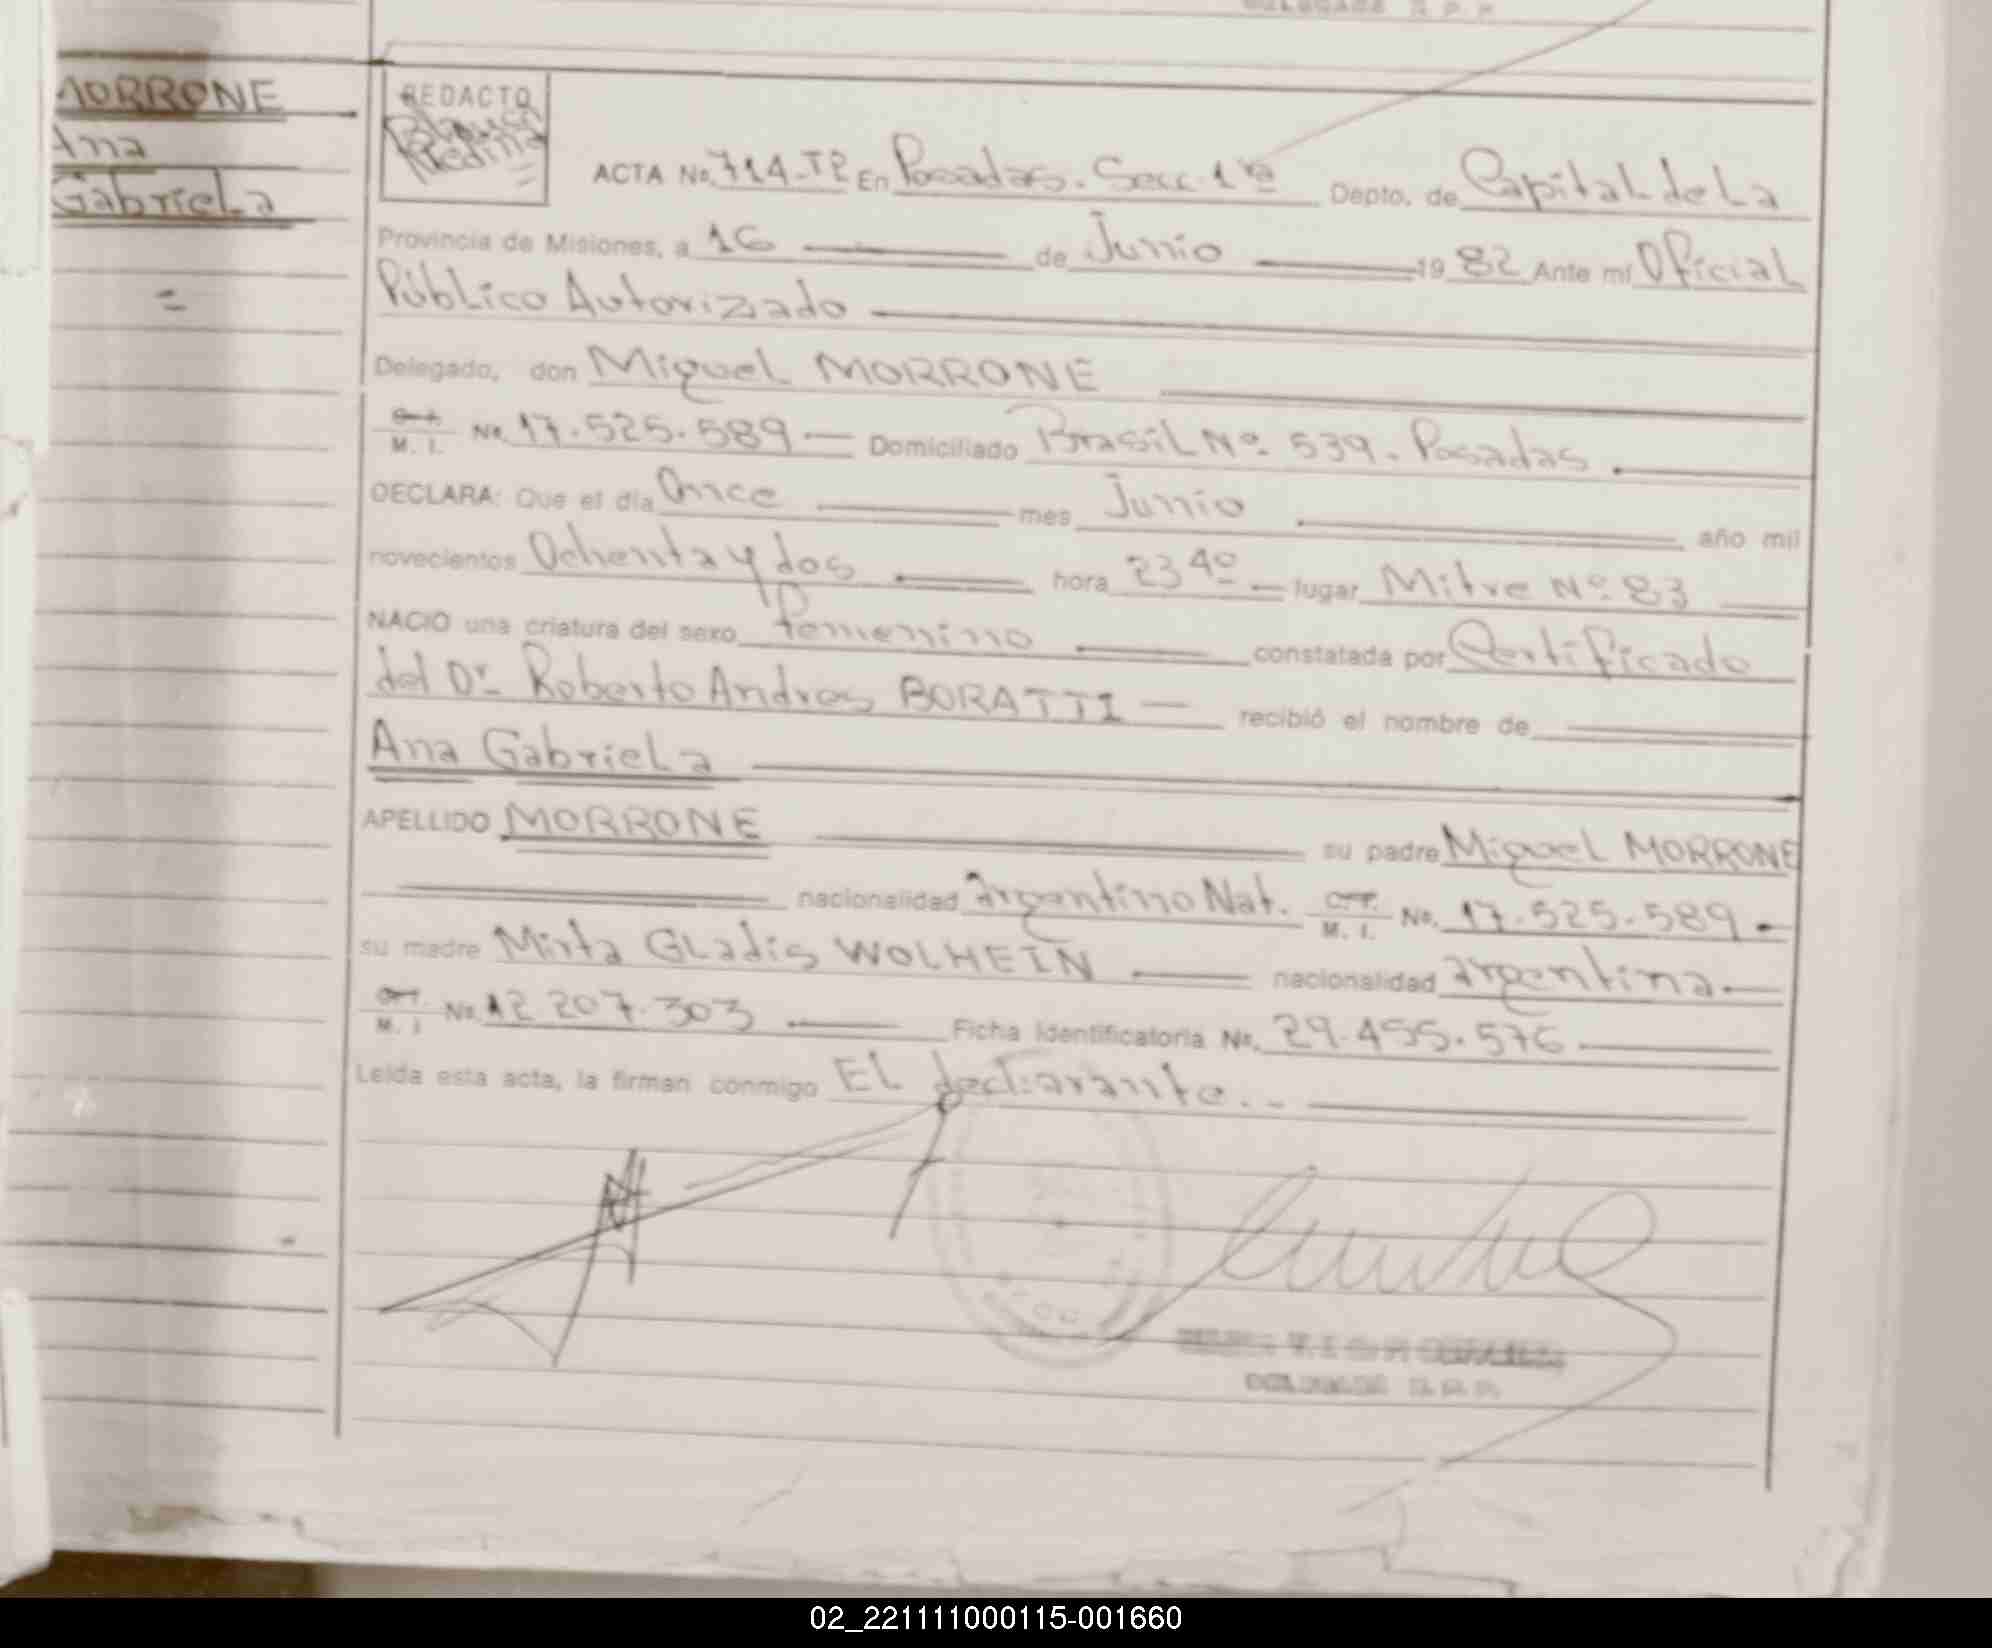 MORRONE
Ana
Gabriela
=
REDACTO
Blanca
Medina
ACTA No. 714-TP En Posadas. Secc. 1ra Depto. de Capital de La
Provincia de Misiones, a 16 de Junio 19 82 Ante mí Oficial
Público Autorizado
Delegado, don Miguel MORRONE
M. I. No. 17.525.589 — Domiciliado Brasil Nº 539. Posadas
DECLARA: Que el día Once mes Junio año mil
novecientos Ochenta y dos hora 23 40 — lugar Mitre Nº 83
NACIO una criatura del sexo femenino constatada por Certificado
del Dr. Roberto Andres BORATTI — recibió el nombre de
Ana Gabriela
APELLIDO MORRONE su padre Miguel MORRONE
nacionalidad argentino Nat. M. I. No. 17.525.589
su madre Mirta Gladis WOLHEIN nacionalidad argentina.
M. I No. 12 207.303 Ficha Identificatoria No. 29.455.576
Leída esta acta, la firman conmigo El declarante. -
DELEGADA R. P. P.
02_221111000115-001660